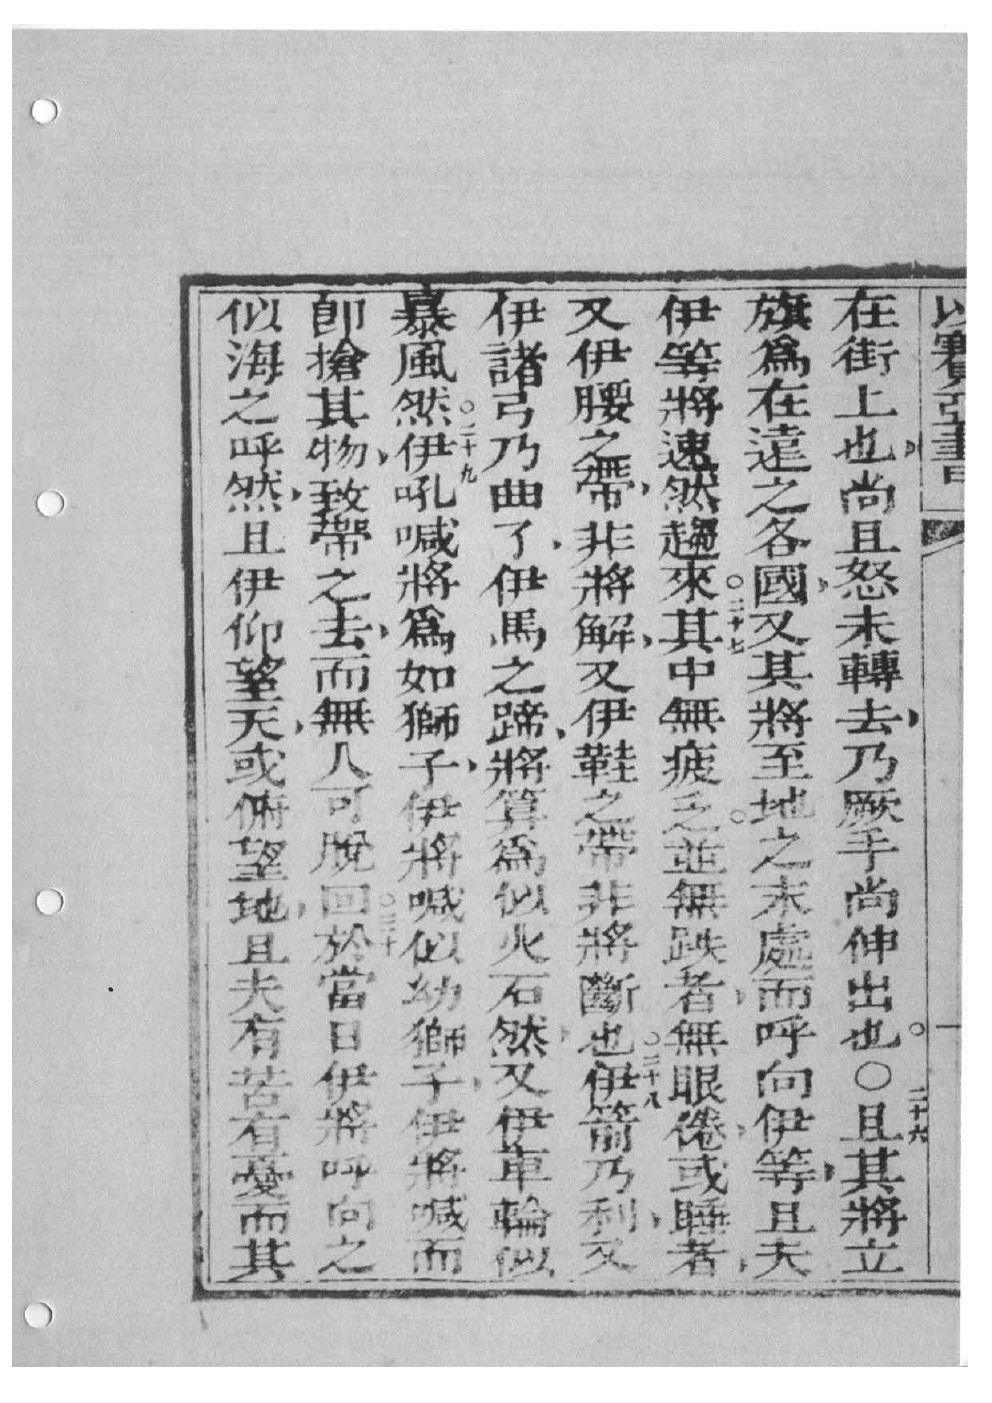 以賽亞書
在街上也尚且怒未轉去乃厥手尚伸出也○二十六且其將立
旗爲在遠之各國又其將至地之末處而呼向伊等且夫
伊等將速然趨來○二十七其中無疲乏並無跌者無眼倦或睡者
又伊腰之帶非將解又伊鞋之帶非將斷也○二十八伊箭乃利又
伊諸弓乃曲了伊馬之蹄將算爲似火石然又伊車輪似
暴風然○二十九伊吼喊將爲如獅子伊將喊似幼獅子伊將喊而
卽搶其物致帶之去而無人可脫回○三十於當日伊將呼向之
似海之呼然且伊仰望天或俯望地且夫有苦有憂而其